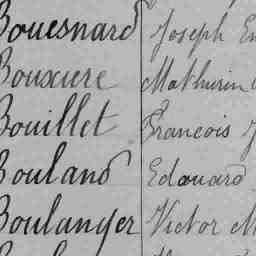 Bouesnard Joseph Em
Bouxiere Mathurin
Bouillet Francois J
Bouland Edouard
Boulanger Victor M